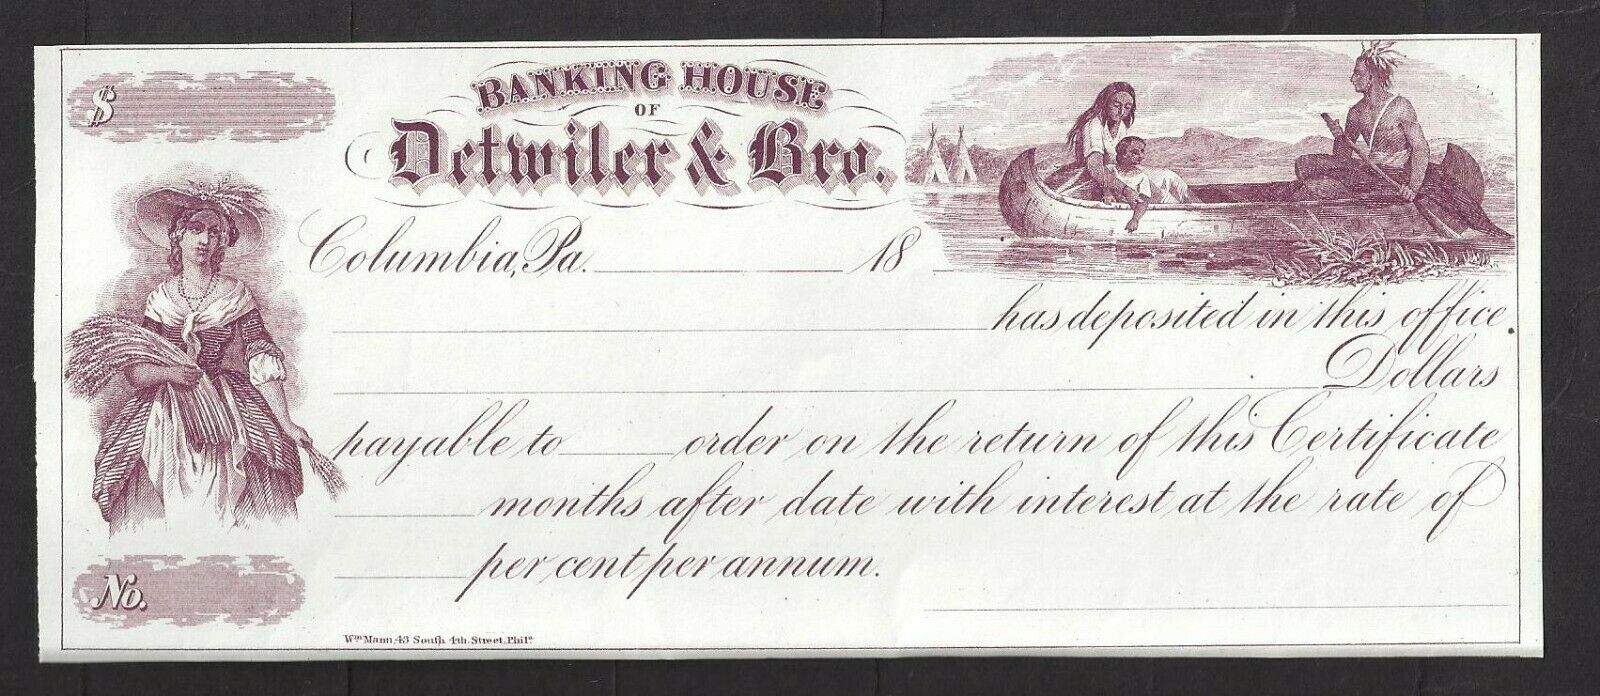 $
BANKING HOUSE
OF
Detwiler & Bro.
Columbia, Pa. 18
has deposited in this office
Dollars
payable to order on the return of this Certificate
months after date with interest at the rate of
per cent per annum.
No.
Wm Mann, 43 South 4th. Street, Phila